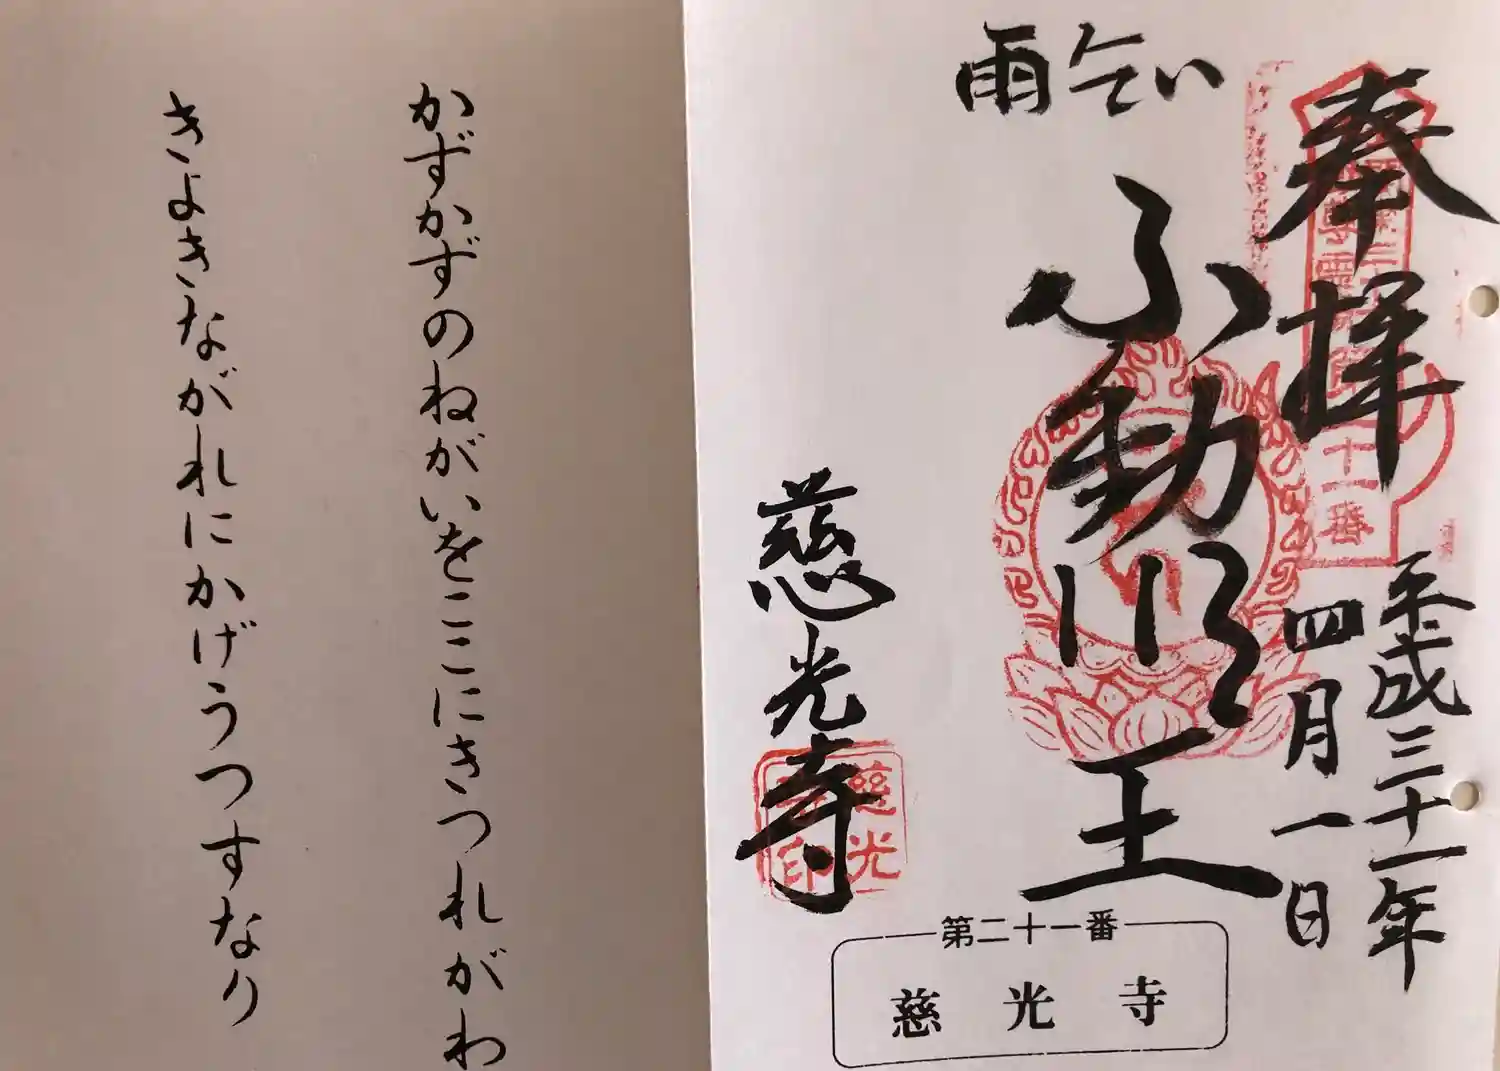 奉拝
平成三十一年
四月一日
雨乞い
ふ動明王
慈光寺
十一番
慈光寺印
第二十一番
慈光寺
かずかずのねがいをここにきつれがわ
きよきながれにかげうつすなり